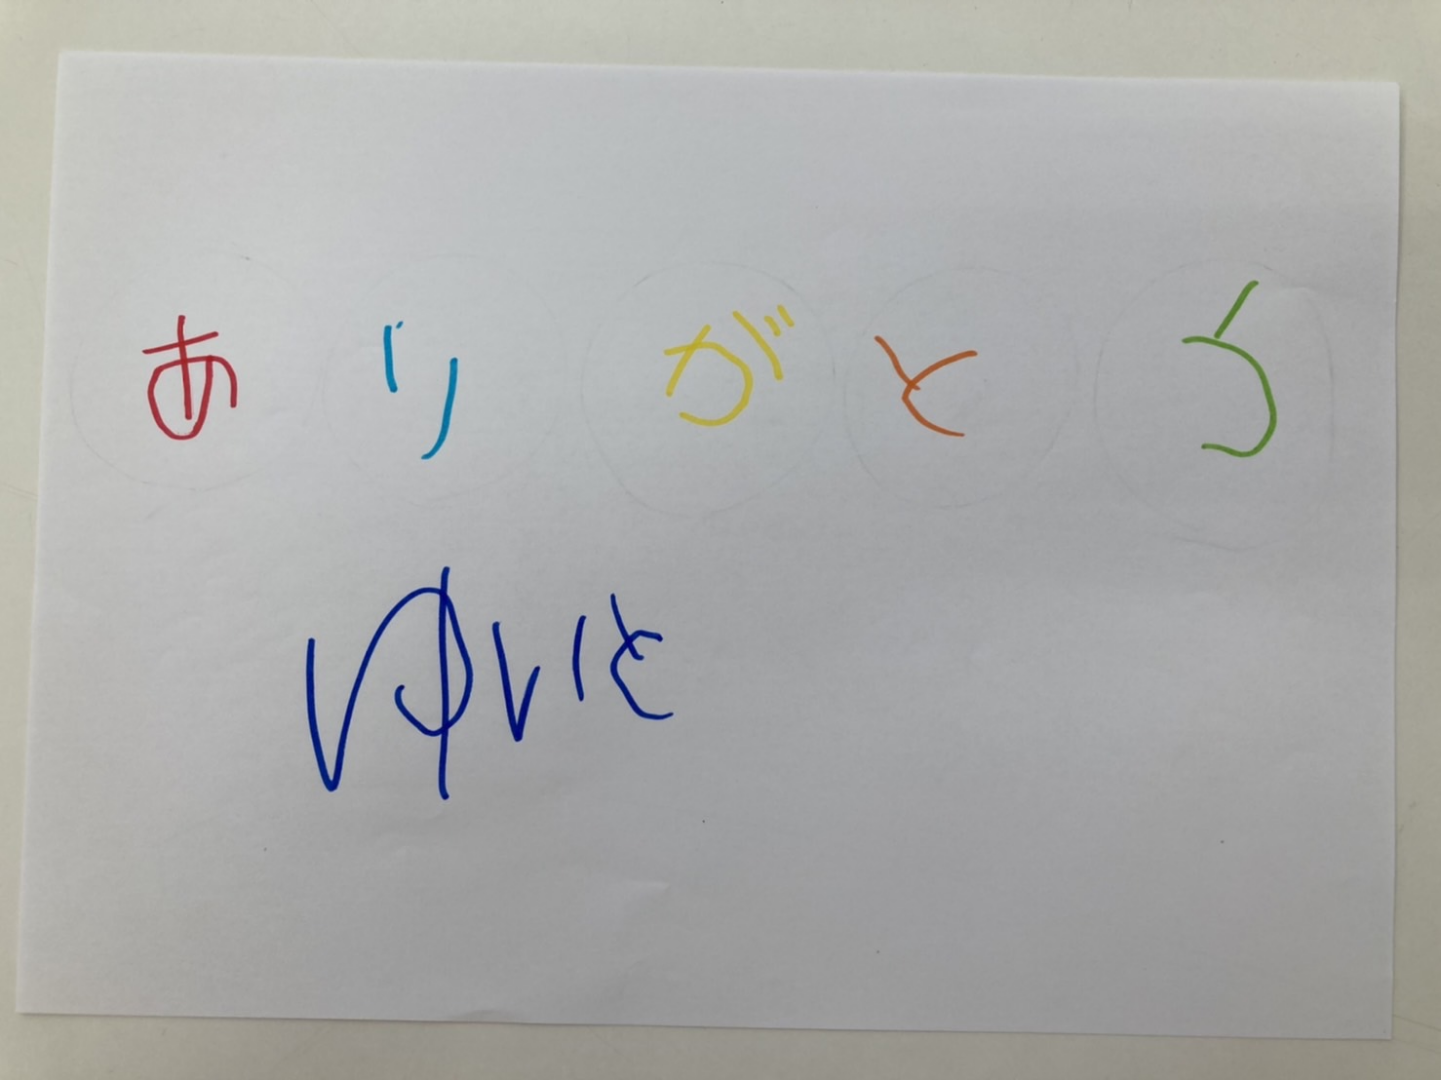 ありがとう
ゆいと